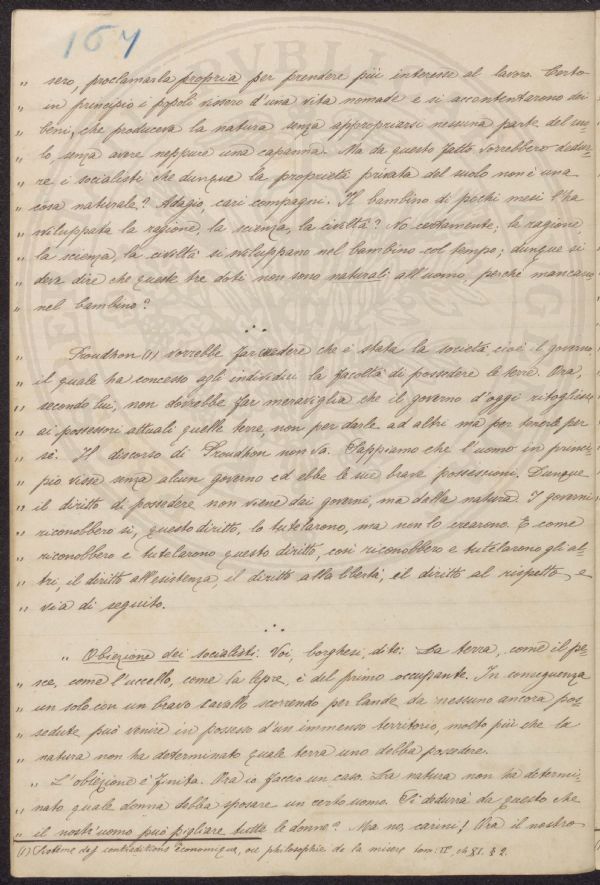 167
" sero, proclamarla propria per prendere più interesse al lavoro. Certo
" in principio i popoli vissero d'una vita nomade e si accontentarono dei
" beni, che produceva la natura senza appropriarsi nessuna parte del suo-
" lo, senza avere neppure una capanna. Ma da questo fatto vorrebbero dedur-
" re i socialisti che dunque la proprietà privata del suolo non è una
" cosa naturale? Adagio, cari compagni. Il bambino di pochi mesi l'ha
" sviluppata la ragione, la scienza, la civiltà? No certamente; la ragione,
" la scienza, la civiltà si sviluppano nel bambino col tempo; dunque si
" deve dire che queste tre doti non sono naturali all'uomo, perchè mancano
" nel bambino?
" Proudhon (1) vorrebbe far credere che è stata la società, cioè il governo,
" il quale ha concesso agli individui la facoltà di possedere le terre. Ora,
" secondo lui, non dovrebbe far meraviglia che il governo d'oggi ritogliesse
" ai possessori attuali quelle terre, non per darle ad altri ma per tenerle per
" sè. Il discorso di Proudhon non va. Sappiamo che l'uomo in princi-
" pio visse senza alcun governo ed ebbe le sue brave possessioni. Dunque
" il diritto di possedere non viene dai governi, ma dalla natura. I governi
" riconobbero sì, questo diritto, lo tutelarono, ma non lo crearono. E come
" riconobbero e tutelarono questo diritto, così riconobbero e tutelarono gli al-
" tri, il diritto all'esistenza, il diritto alla libertà, il diritto al rispetto, e
" via di seguito.
" Obiezione dei socialisti: Voi, borghesi, dite: La terra, come il pe-
" sce, come l'uccello, come la lepre, è del primo occupante. In conseguenza
" un solo con un bravo cavallo scorrendo per lande da nessuno ancora pos-
" sedute può venire in possesso d'un immenso territorio, molto più che la
" natura non ha determinato quale terra uno debba possedere.
" L'obiezione è finita. Ora io faccio un caso. La natura non ha determi-
" nato quale donna debba sposare un certo uomo. Si dedurrà da questo che
" il nostr'uomo può pigliare tutte le donne? Ma no, carini! Ora il nostro
(1) Sistème des contraditions économiques, ou philosophie de la misere tom. II, ch XI. § 2.